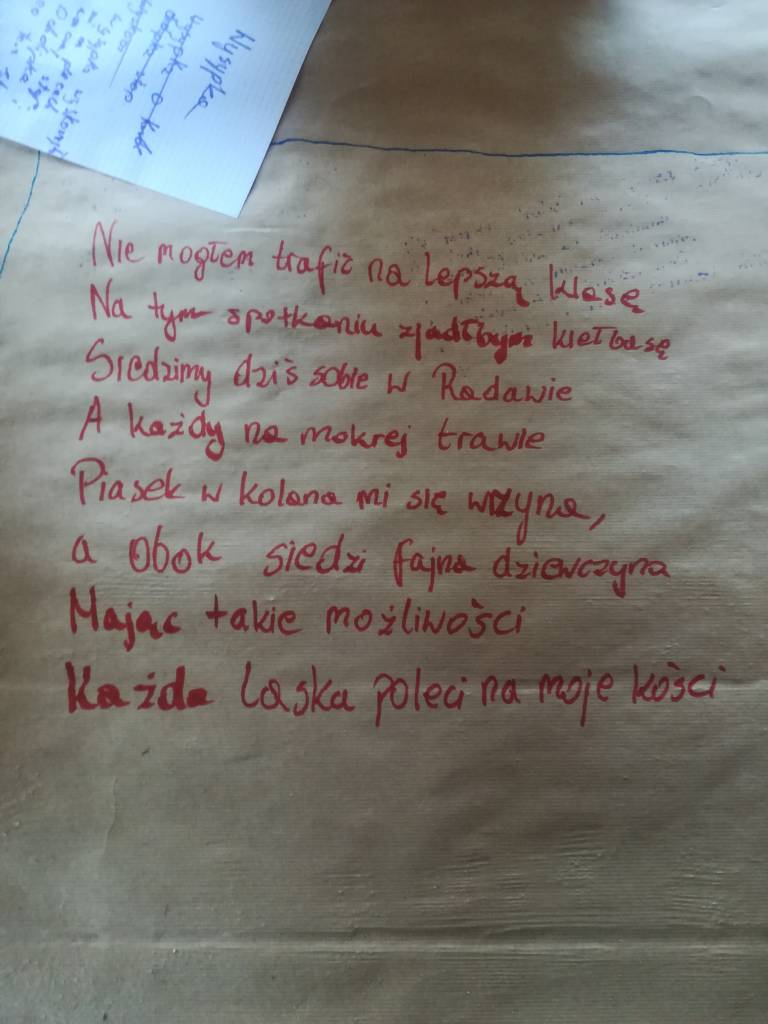 Wysypka
Nie mogłem trafić na lepszą klasę
Na tym spotkaniu zjadłbym kiełbasę
Siedzimy dziś sobie w Radawie
A każdy na mokrej trawie
Piasek w kolana mi się wrzyna,
a obok siedzi fajna dziewczyna
Mając takie możliwości
Każda laska poleci na moje kości